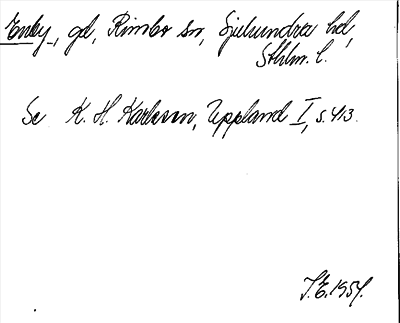 Enby, gd, Rimbo sn, Sjuhundra hd,
Sthlm. l.
Se K. H. Karlsson, Uppland I, s. 413.
J.E. 1954.